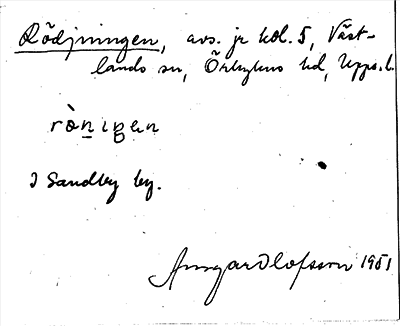 Rödjningen, avs. jr kol. 5, Väst-
lands sn, Örbyhus hd, Upps. l.
rò̀n̲ıŋen
I Sandby by.
Ansgar Olofsson 1951